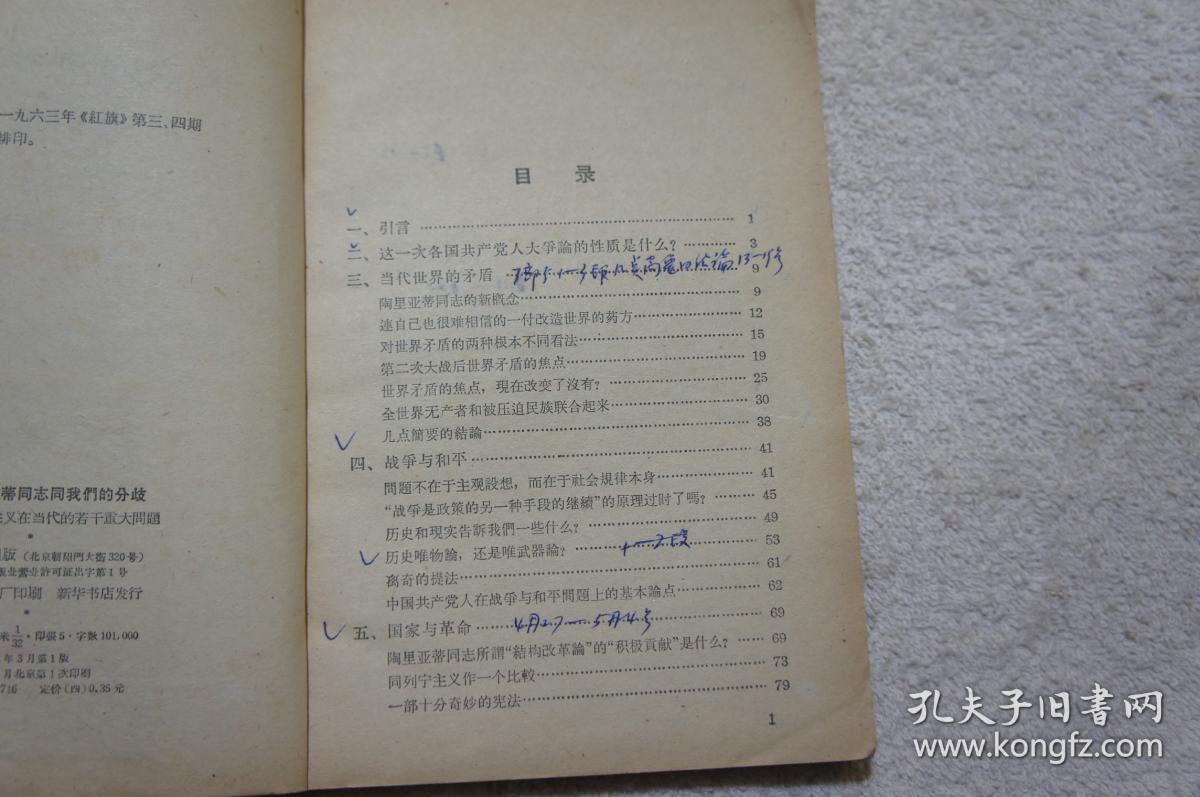 一九六三年《紅旗》第三、四期
排印。
蒂同志同我們的分歧
义在当代的若干重大問題
版（北京朝阳門大街320号）
版业营业許可証出字第1号
厂印刷 新华书店发行
米1/32·印張5·字数101,000
年3月第1版
月北京第1次印刷
716 定价（四）0.35元
目 录
一、引言 1
二、这一次各国共产党人大爭論的性质是什么？ 3
三、当代世界的矛盾 9
陶里亚蒂同志的新概念 9
連自己也很难相信的一付改造世界的药方 12
对世界矛盾的两种根本不同看法 15
第二次大战后世界矛盾的焦点 19
世界矛盾的焦点，現在改变了沒有？ 25
全世界无产者和被压迫民族联合起来 30
几点簡要的結論 38
四、战爭与和平 41
問題不在于主观設想，而在于社会規律本身 41
“战爭是政策的另一种手段的继續”的原理过时了嗎？ 45
历史和現实告訴我們一些什么？ 49
历史唯物論，还是唯武器論？ 53
离奇的提法 61
中国共产党人在战爭与和平問題上的基本論点 62
五、国家与革命 4月27—5月4号 69
陶里亚蒂同志所謂“結构改革論”的“积极貢献”是什么？ 69
同列宁主义作一个比較 73
一部十分奇妙的宪法 79
1
孔夫子旧书网
www.kongfz.com